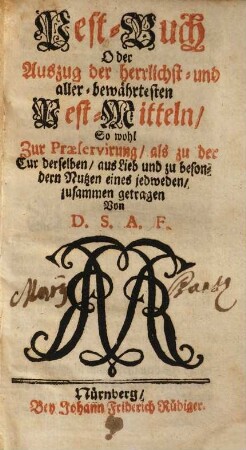 Pest-Buch
Oder
Auszug der herrlichst- und
aller-bewährtesten
Pest-Mitteln/
So wohl
Zur Præservirung/ als zu der
Cur derselben/ aus Lieb und zu beson-
dern Nutzen eines jedweden/
zusammen getragen
Von
D. S. A. F.
Nürnberg/
Bey Johann Friderich Rüdiger.